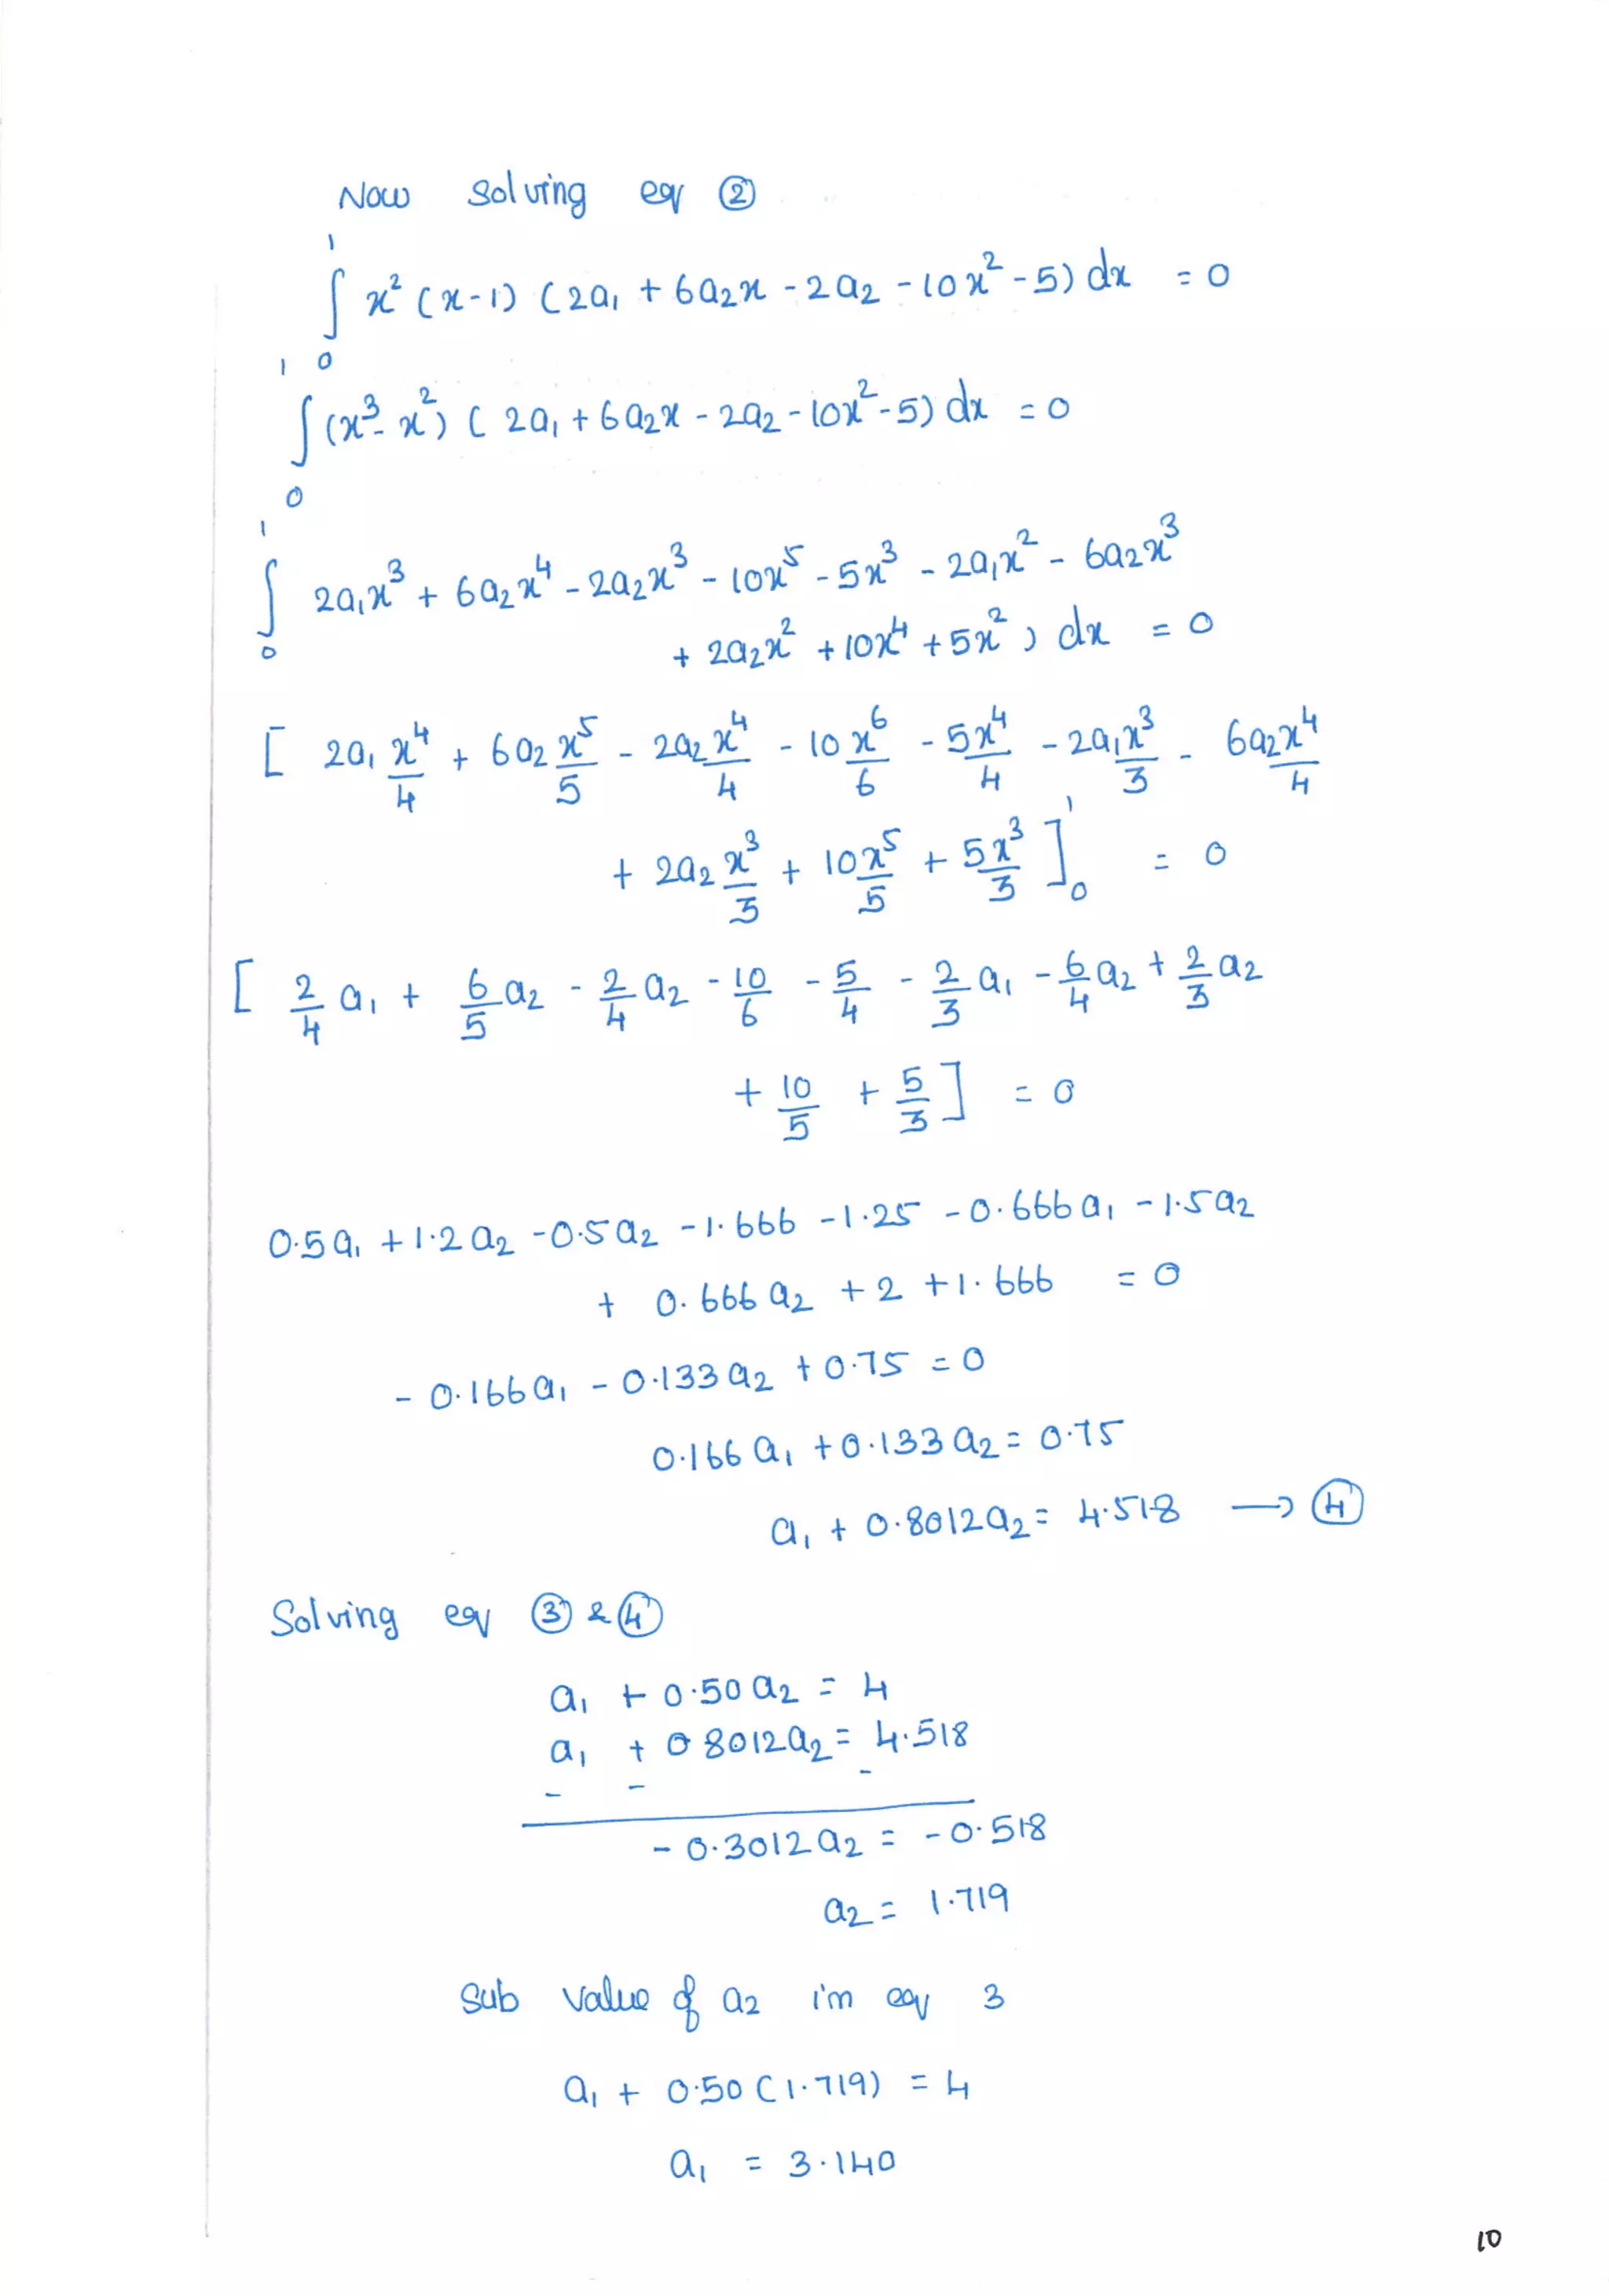 Now Solving eq ②
∫₀¹ x² (x-1) (2a₁ + 6a₂x - 2a₂ - 10x² - 5) dx = 0
∫₀¹ (x³ - x²) (2a₁ + 6a₂x - 2a₂ - 10x² - 5) dx = 0
∫₀¹ 2a₁x³ + 6a₂x⁴ - 2a₂x³ - 10x⁵ - 5x³ - 2a₁x² - 6a₂x³
+ 2a₂x² + 10x⁴ + 5x²) dx = 0
[ 2a₁ x⁴/4 + 6a₂ x⁵/5 - 2a₂ x⁴/4 - 10 x⁶/6 - 5x⁴/4 - 2a₁x³/3 - 6a₂x⁴/4
+ 2a₂ x³/3 + 10x⁵/5 + 5x³/3 ]₀¹ = 0
[ 2/4 a₁ + 6/5 a₂ - 2/4 a₂ - 10/6 - 5/4 - 2/3 a₁ - 6/4 a₂ + 2/3 a₂
+ 10/5 + 5/3 ] = 0
0.5a₁ + 1.2a₂ - 0.5a₂ - 1.666 - 1.25 - 0.666a₁ - 1.5a₂
+ 0.666a₂ + 2 + 1.666 = 0
- 0.166a₁ - 0.133a₂ + 0.75 = 0
0.166a₁ + 0.133a₂ = 0.75
a₁ + 0.8012a₂ = 4.518 → ④
Solving eq ③ & ④
a₁ + 0.50a₂ = 4
a₁ + 0 8012a₂ = 4.518
- - -
- 0.3012a₂ = - 0.518
a₂ = 1.719
Sub value of a₂ in eq 3
a₁ + 0.50 (1.719) = 4
a₁ = 3.140
10